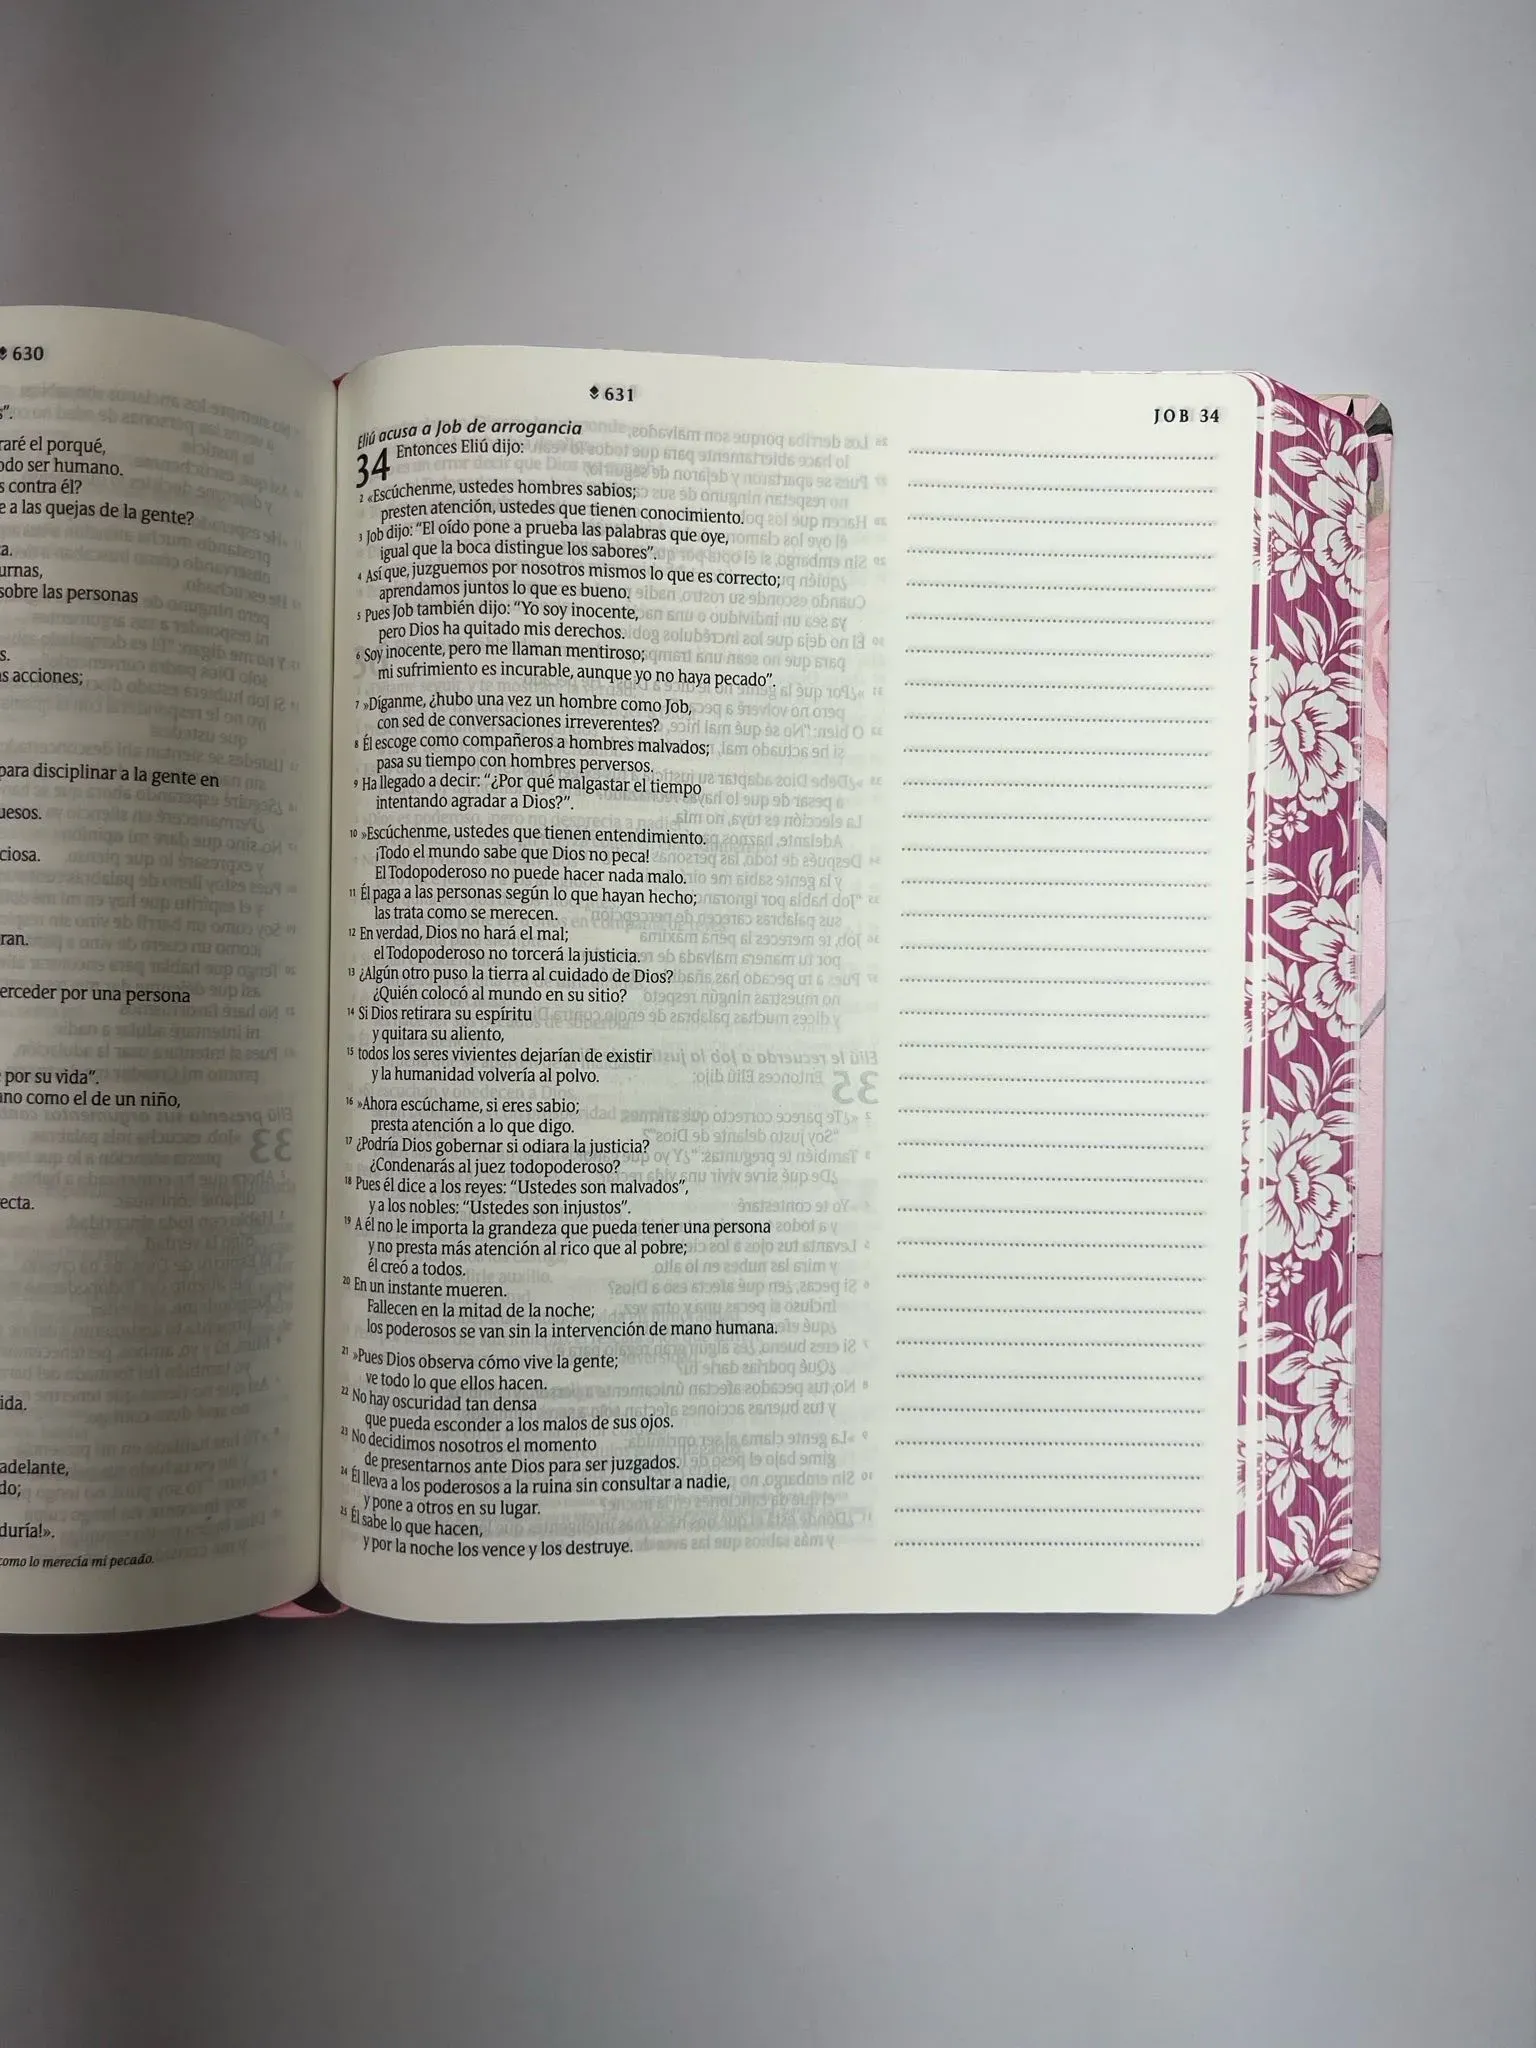 630
s”.
raré el porqué,
odo ser humano.
s contra él?
e a las quejas de la gente?
a.
urnas,
sobre las personas
s.
s acciones;
para disciplinar a la gente en
uesos.
ciosa.
ran.
erceder por una persona
por su vida”.
ano como el de un niño,
ecta.
ida.
adelante,
do;
duría!».
como lo merecía mi pecado.
631
JOB 34
Eliú acusa a Job de arrogancia
34 Entonces Eliú dijo:
2 «Escúchenme, ustedes hombres sabios;
presten atención, ustedes que tienen conocimiento.
3 Job dijo: “El oído pone a prueba las palabras que oye,
igual que la boca distingue los sabores”.
4 Así que, juzguemos por nosotros mismos lo que es correcto;
aprendamos juntos lo que es bueno.
5 Pues Job también dijo: “Yo soy inocente,
pero Dios ha quitado mis derechos.
6 Soy inocente, pero me llaman mentiroso;
mi sufrimiento es incurable, aunque yo no haya pecado”.
7 »Díganme, ¿hubo una vez un hombre como Job,
con sed de conversaciones irreverentes?
8 Él escoge como compañeros a hombres malvados;
pasa su tiempo con hombres perversos.
9 Ha llegado a decir: “¿Por qué malgastar el tiempo
intentando agradar a Dios?”.
10 »Escúchenme, ustedes que tienen entendimiento.
¡Todo el mundo sabe que Dios no peca!
El Todopoderoso no puede hacer nada malo.
11 Él paga a las personas según lo que hayan hecho;
las trata como se merecen.
12 En verdad, Dios no hará el mal;
el Todopoderoso no torcerá la justicia.
13 ¿Algún otro puso la tierra al cuidado de Dios?
¿Quién colocó al mundo en su sitio?
14 Si Dios retirara su espíritu
y quitara su aliento,
15 todos los seres vivientes dejarían de existir
y la humanidad volvería al polvo.
16 »Ahora escúchame, si eres sabio;
presta atención a lo que digo.
17 ¿Podría Dios gobernar si odiara la justicia?
¿Condenarás al juez todopoderoso?
18 Pues él dice a los reyes: “Ustedes son malvados”,
y a los nobles: “Ustedes son injustos”.
19 A él no le importa la grandeza que pueda tener una persona
y no presta más atención al rico que al pobre;
él creó a todos.
20 En un instante mueren.
Fallecen en la mitad de la noche;
los poderosos se van sin la intervención de mano humana.
21 »Pues Dios observa cómo vive la gente;
ve todo lo que ellos hacen.
22 No hay oscuridad tan densa
que pueda esconder a los malos de sus ojos.
23 No decidimos nosotros el momento
de presentarnos ante Dios para ser juzgados.
24 Él lleva a los poderosos a la ruina sin consultar a nadie,
y pone a otros en su lugar.
25 Él sabe lo que hacen,
y por la noche los vence y los destruye.